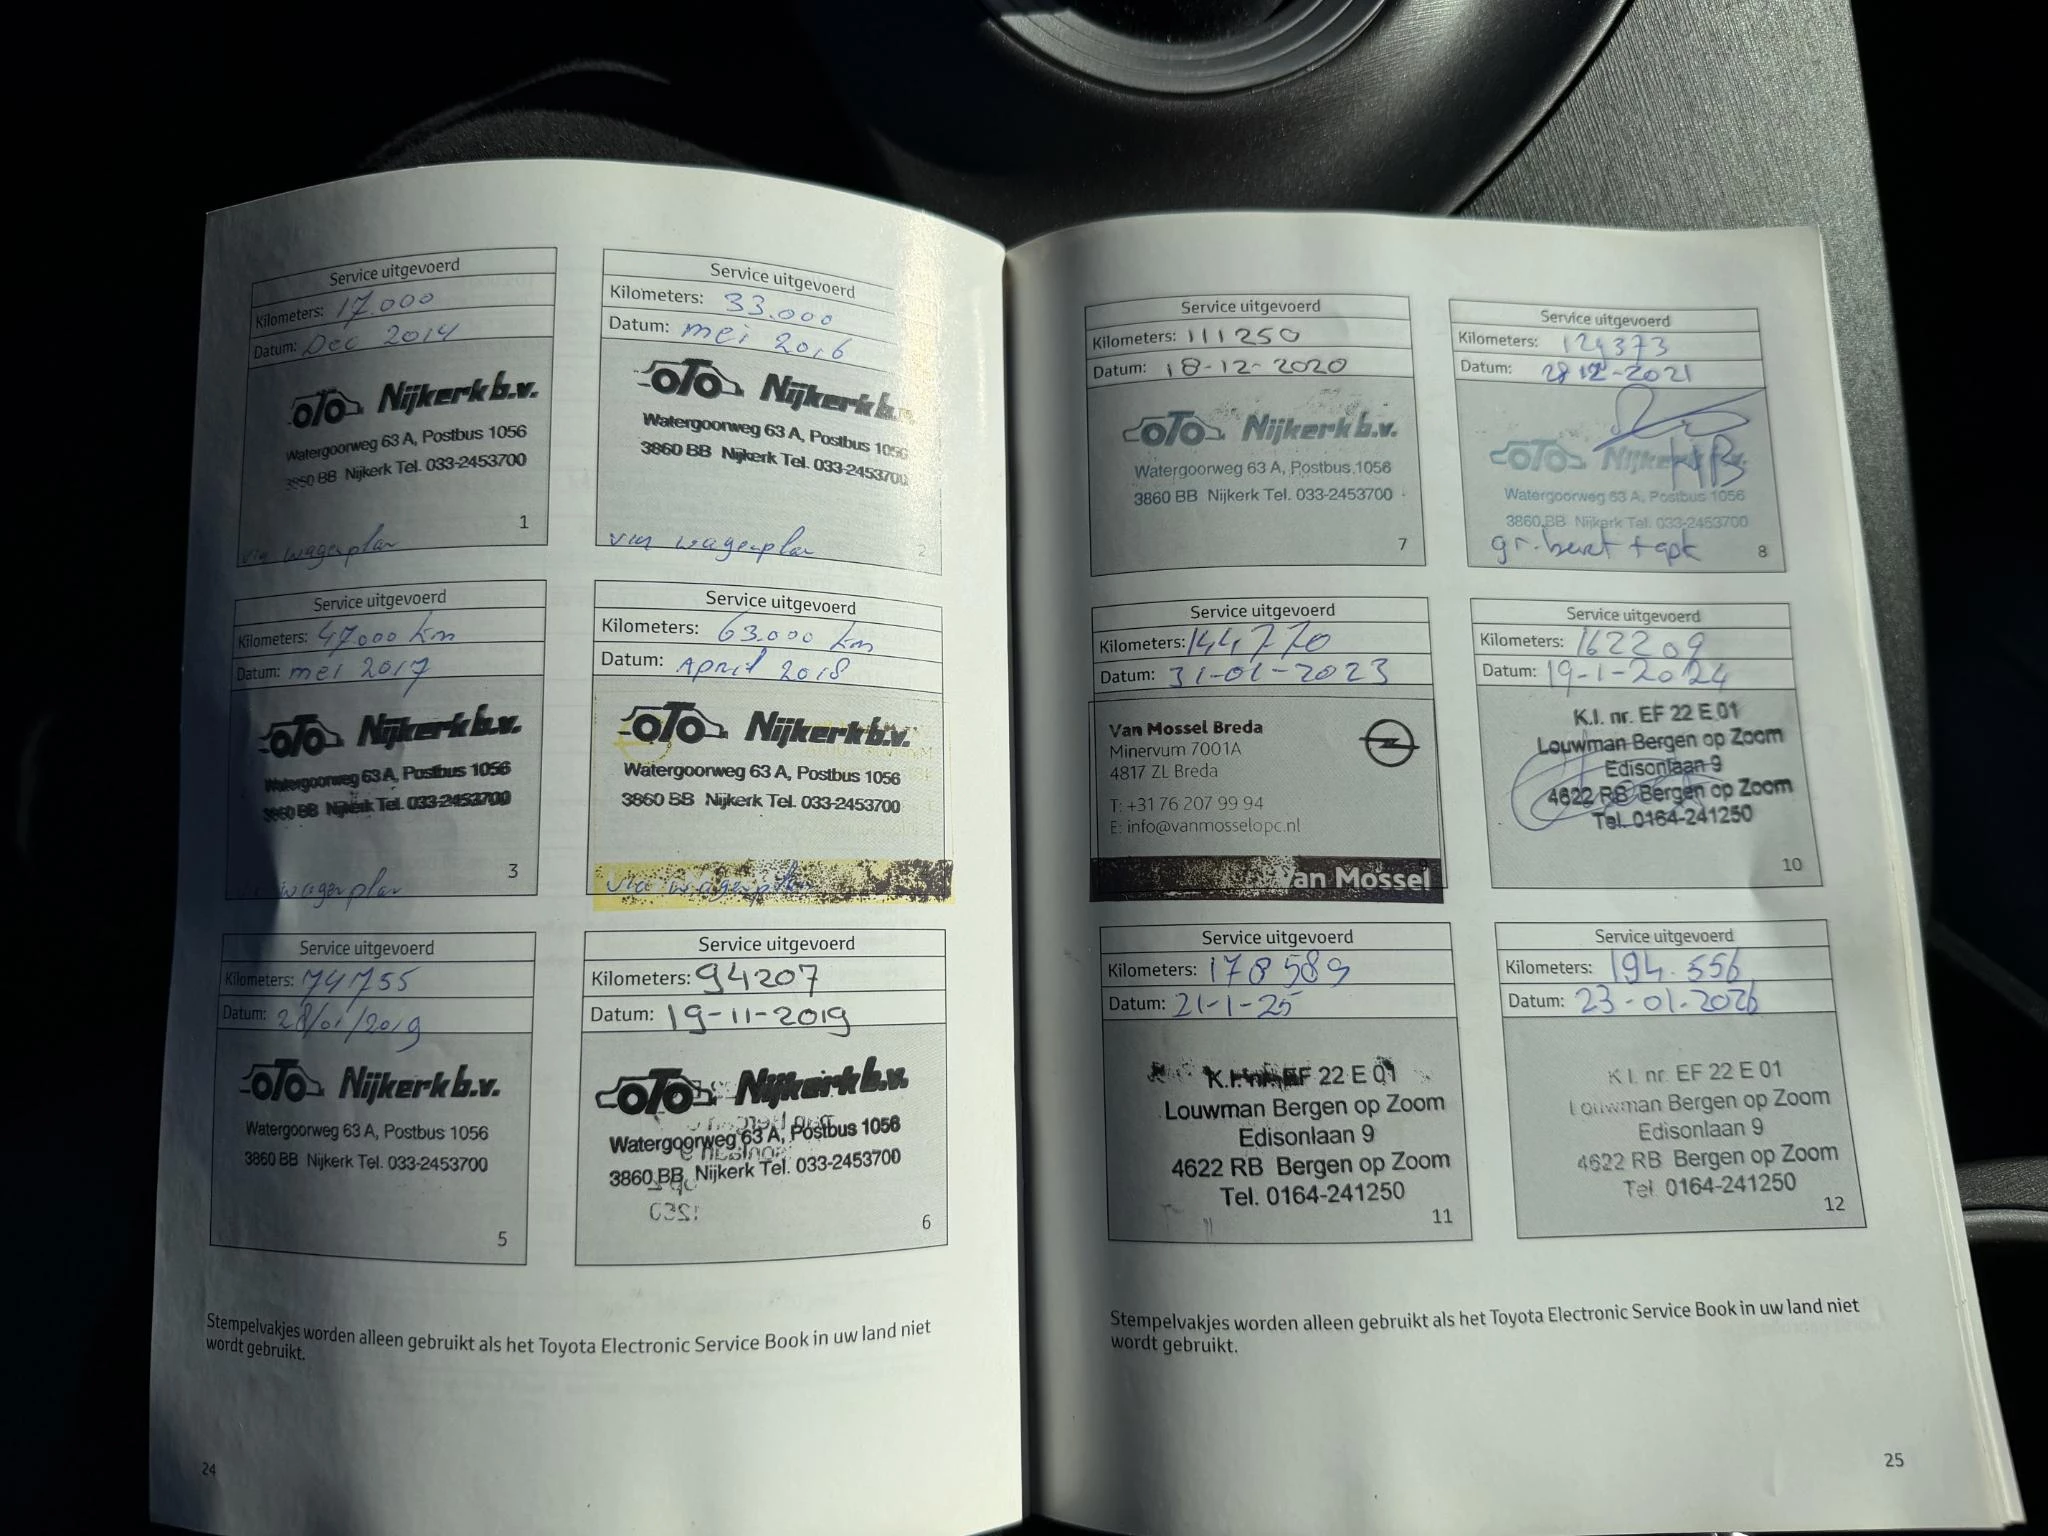 Service uitgevoerd
Kilometers: 17.000
Datum: Dec 2014
OTO Nijkerk b.v.
Watergoorweg 63 A, Postbus 1056
3860 BB Nijkerk Tel. 033-2453700
1
via wagenplan
Service uitgevoerd
Kilometers: 33.000
Datum: mei 2016
OTO Nijkerk b.v.
Watergoorweg 63 A, Postbus 1056
3860 BB Nijkerk Tel. 033-2453700
2
via wagenplan
Service uitgevoerd
Kilometers: 47.000 km
Datum: mei 2017
OTO Nijkerk b.v.
Watergoorweg 63 A, Postbus 1056
3860 BB Nijkerk Tel. 033-2453700
3
via wagenplan
Service uitgevoerd
Kilometers: 63.000 km
Datum: April 2018
OTO Nijkerk b.v.
Watergoorweg 63 A, Postbus 1056
3860 BB Nijkerk Tel. 033-2453700
via wagenplan
Service uitgevoerd
Kilometers: 74755
Datum: 28/01/2019
OTO Nijkerk b.v.
Watergoorweg 63 A, Postbus 1056
3860 BB Nijkerk Tel. 033-2453700
5
Service uitgevoerd
Kilometers: 94207
Datum: 19-11-2019
OTO Nijkerk b.v.
Watergoorweg 63 A, Postbus 1056
3860 BB Nijkerk Tel. 033-2453700
6
Stempelvakjes worden alleen gebruikt als het Toyota Electronic Service Book in uw land niet
wordt gebruikt.
24
Service uitgevoerd
Kilometers: 111250
Datum: 18-12-2020
OTO Nijkerk b.v.
Watergoorweg 63 A, Postbus 1056
3860 BB Nijkerk Tel. 033-2453700
7
Service uitgevoerd
Kilometers: 129373
Datum: 28 12-2021
OTO Nijkerk b.v.
Watergoorweg 63 A, Postbus 1056
3860 BB Nijkerk Tel. 033-2453700
gr. beurt + apk
8
Service uitgevoerd
Kilometers: 144770
Datum: 31-01-2023
Van Mossel Breda
Minervum 7001A
4817 ZL Breda
T: +31 76 207 99 94
E: info@vanmosselopc.nl
9
Van Mossel
Service uitgevoerd
Kilometers: 162209
Datum: 19-1-2024
K.I. nr. EF 22 E 01
Louwman Bergen op Zoom
Edisonlaan 9
4622 RB Bergen op Zoom
Tel. 0164-241250
10
Service uitgevoerd
Kilometers: 178589
Datum: 21-1-25
K.I. nr. EF 22 E 01
Louwman Bergen op Zoom
Edisonlaan 9
4622 RB Bergen op Zoom
Tel. 0164-241250
11
Service uitgevoerd
Kilometers: 194.556
Datum: 23-01-2026
K.I. nr. EF 22 E 01
Louwman Bergen op Zoom
Edisonlaan 9
4622 RB Bergen op Zoom
Tel. 0164-241250
12
Stempelvakjes worden alleen gebruikt als het Toyota Electronic Service Book in uw land niet
wordt gebruikt.
25